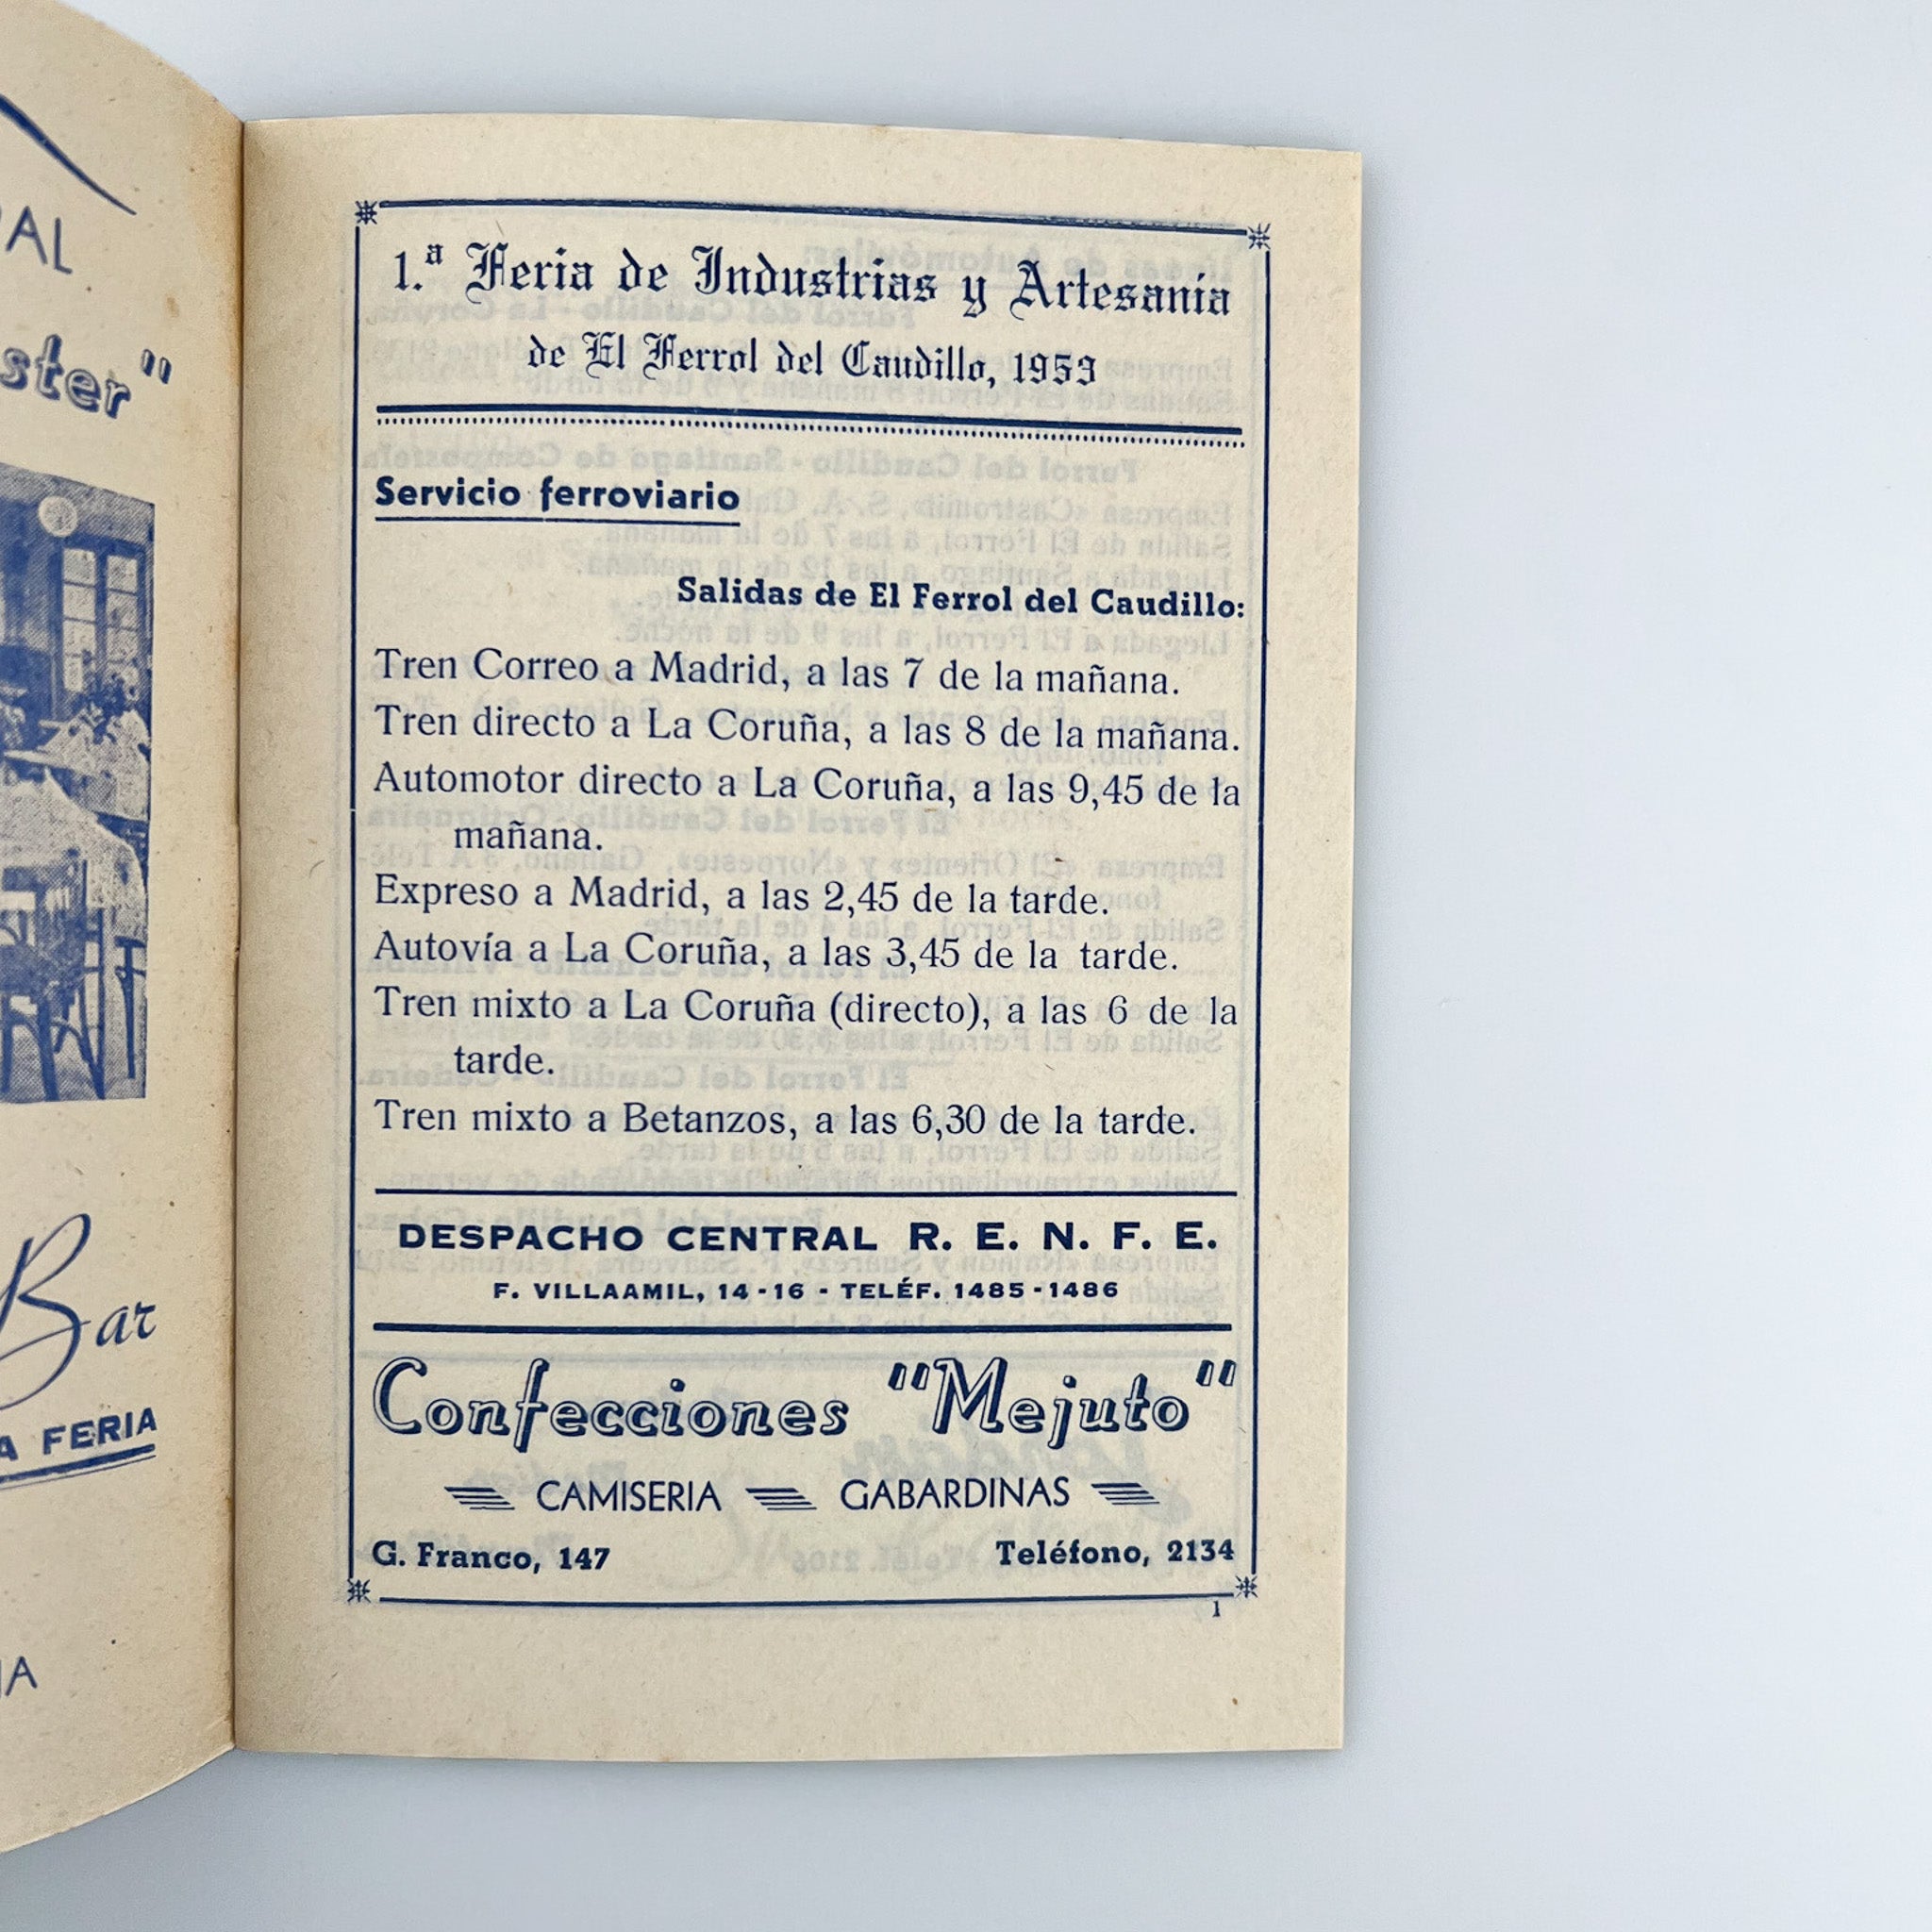 ster"
Bar
A FERIA
1.ª Feria de Industrias y Artesanía
de El Ferrol del Caudillo, 1953
Servicio ferroviario
Salidas de El Ferrol del Caudillo:
Tren Correo a Madrid, a las 7 de la mañana.
Tren directo a La Coruña, a las 8 de la mañana.
Automotor directo a La Coruña, a las 9,45 de la
mañana.
Expreso a Madrid, a las 2,45 de la tarde.
Autovía a La Coruña, a las 3,45 de la tarde.
Tren mixto a La Coruña (directo), a las 6 de la
tarde.
Tren mixto a Betanzos, a las 6,30 de la tarde.
DESPACHO CENTRAL R. E. N. F. E.
F. VILLAAMIL, 14-16 - TELÉF. 1485-1486
Confecciones "Mejuto"
CAMISERIA GABARDINAS
G. Franco, 147 Teléfono, 2134
1